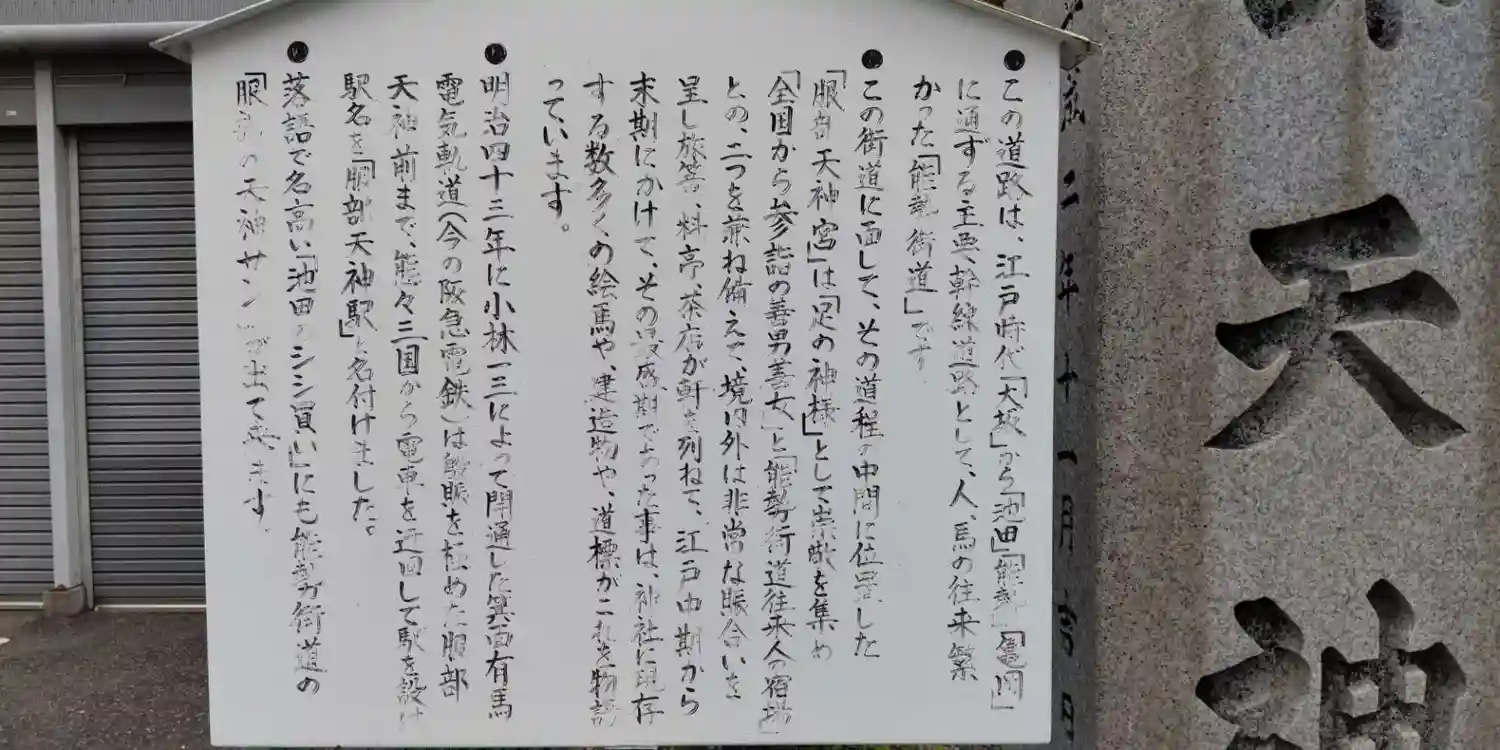 ● この道路は、江戸時代「大坂」から「池田」「能勢」「亀岡」
に通ずる主要幹線道路として、人、馬の往来繁
かった「能勢街道」です
● この街道に面して、その道程の中間に位置した
「服部天神宮」は「足の神様」として崇敬を集め
「全国から参詣の善男善女」と「能勢街道往来人の宿場」
との、二つを兼ね備えて、境内外は非常な賑合いを
呈し旅篭、料亭、茶店が軒を列ねて、江戸中期から
末期にかけて、その最盛期であった事は、神社に現存
する数多くの絵馬や、建造物や、道標がこれを物語
っています。
● 明治四十三年に小林一三によって開通した箕面有馬
電気軌道(今の阪急電鉄)は殷賑を極めた服部
天神前まで、態々三国から電車を迂回して駅を設け
駅名を「服部天神駅」と名付けました。
● 落語で名高い「池田のシシ買い」にも能勢街道の
「服部の天神サン」が出て来ます。
二年十一月吉日
天神